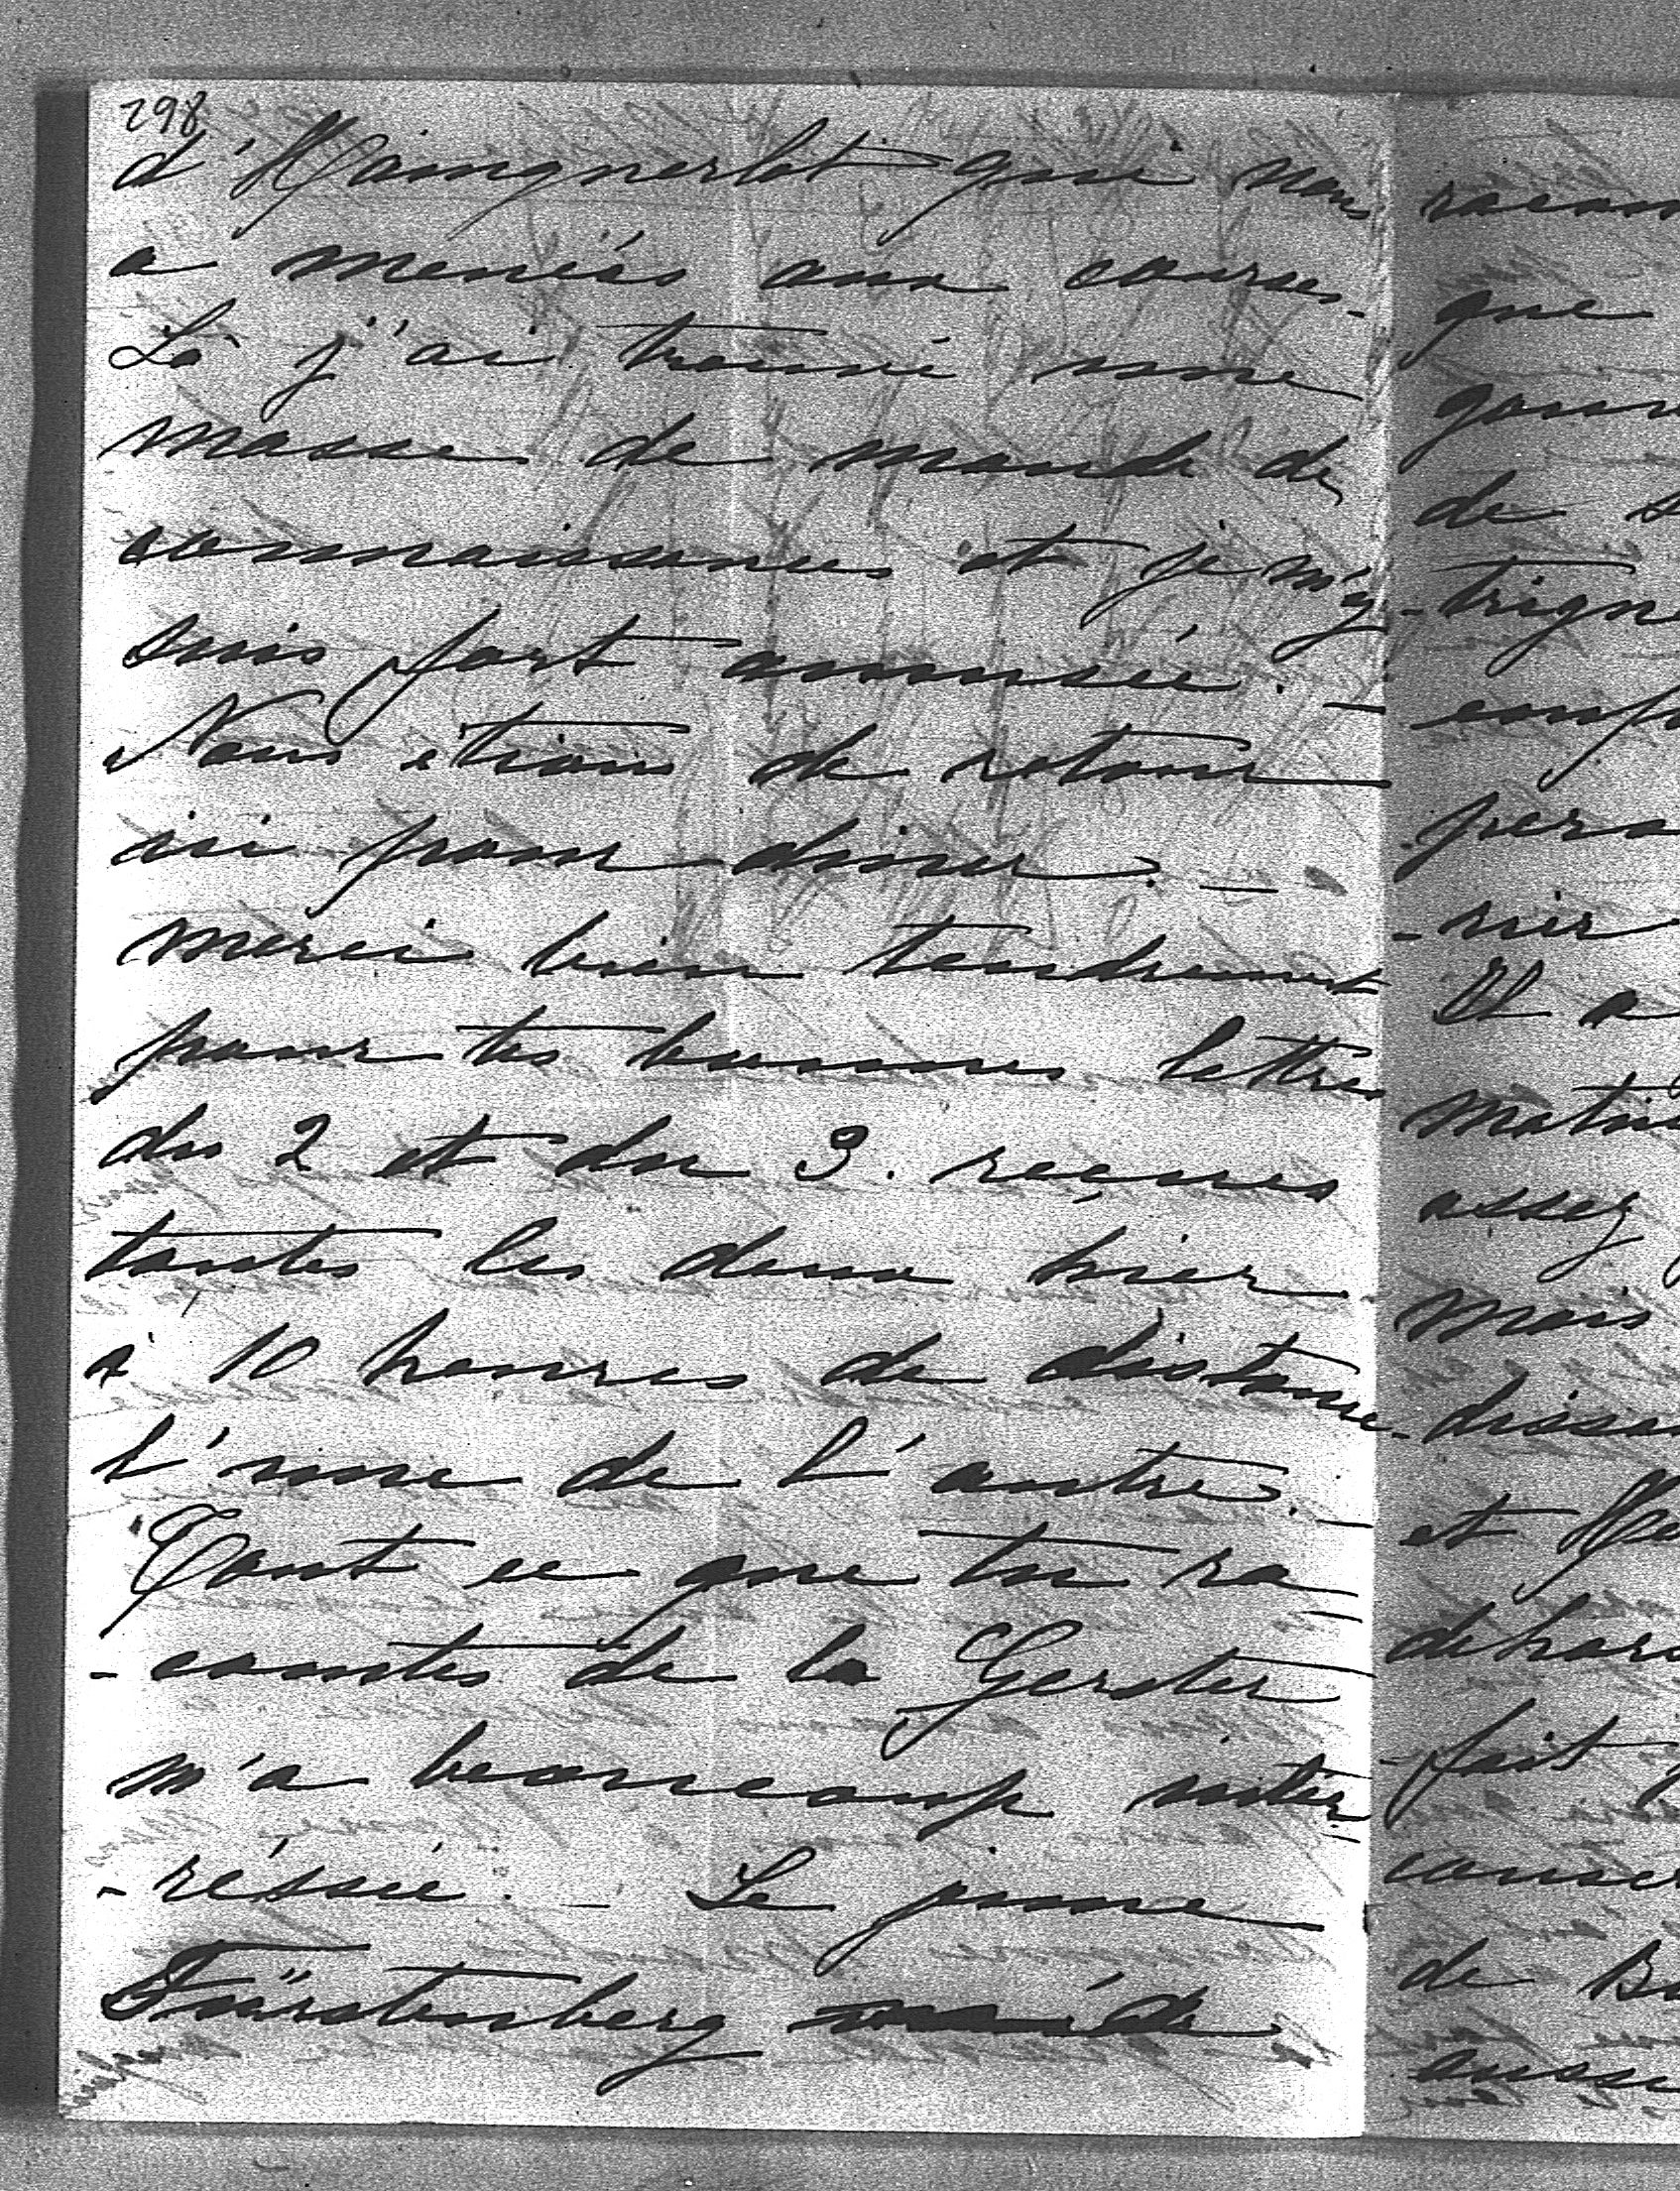 298
d'Hainguerlot qui nous
a menées aux courses.
Là j'ai trouvé une
masse de monde de
connaissances et je m'y
suis fort amusée. —
Nous étions de retour
ici pour diner. —
merci bien tendrement
pour tes bonnes lettres
du 2 et du 3. reçues
toutes les deux hier
à 10 heures de distance
l'une de l'autre. —
Tout ce que tu ra
- contes de la Gerster
m'a beaucoup inté
- réssée. — Le jeune
Fürstenberg
que
de
Il a
assez
mais
et
fait
de